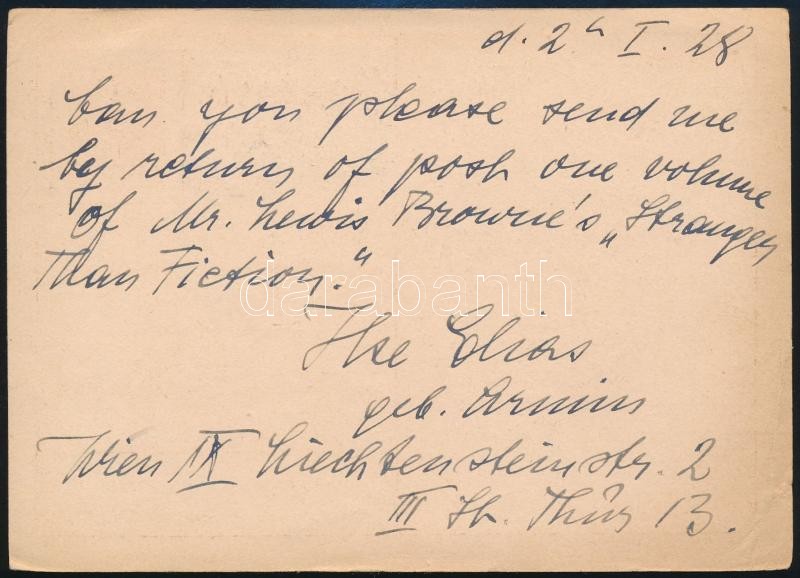 d. 2h I. 28
Can you please send me
by return of post one volume
of Mr. Lewis Browne's „Stranger
Than Fiction.“
darabanth
Ilse Elias
geb. Armin
Wien IX Liechtensteinstr. 2
III St. Thür 13.